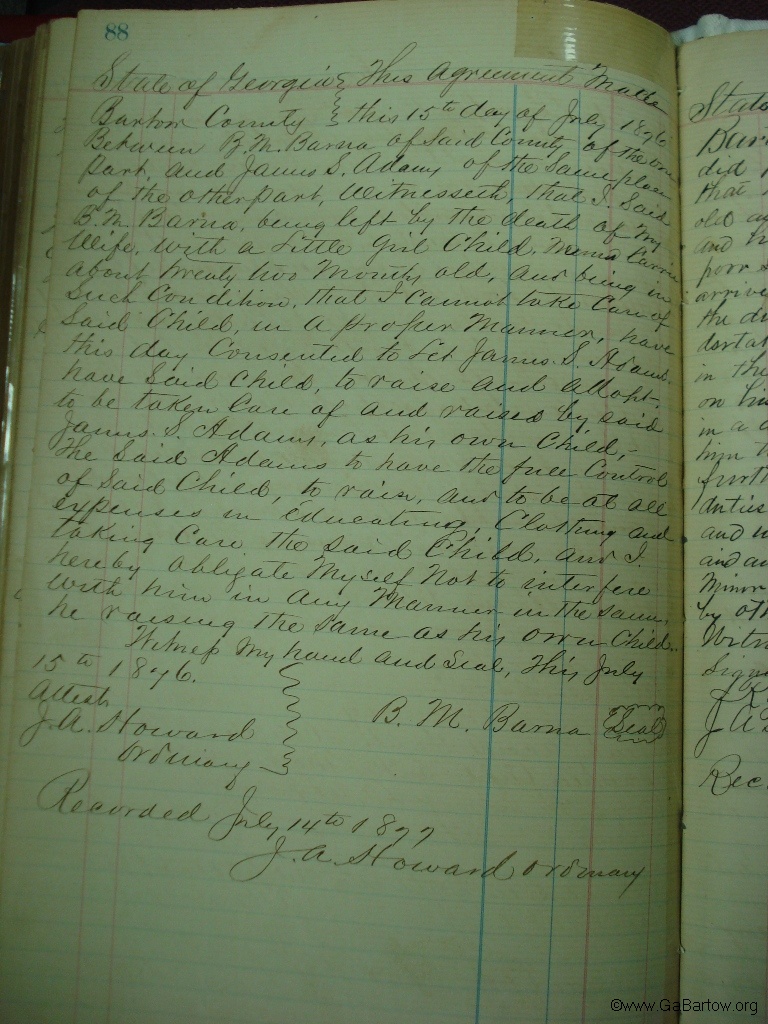 88
State of Georgia } This Agreement Made
Bartow County } this 15th day of July 1876
Between B. M. Barna of Said County of the one
part, and James S. Adams of the Same place
of the other part, Witnesseth, that I Said
B. M. Barna, being left by the death of my
Wife, with a Little Girl Child, Carrie
about twenty two Months old, and being in
Such Condition, that I cannot take Care of
Said Child, in a proper Manner, have
this day Consented to Let James S. Adams
have Said Child, to raise and addopt,
to be taken Care of and raised by said
James. S. Adams, as his own Child,
The Said Adams to have the full Control
of Said Child, to raise, and to be at all
expenses in Educating, Clothing and
taking Care the said Child, and I
hereby obligate Myself Not to interfere
with him in any Manner in the same,
he raising the same as his own Child.
Witness My hand and Seal, This, July
15th 1876.
Attest
J. A. Howard
Ordinary
B. M. Barna (Seal)
Recorded July 14th 1877
J. A. Howard Ordinary
State
did
that
old
and
poor
arrive
the
in the
on
in a
him
duties
and
and
Minor
by oth
Witn
Sign
J A
Rec.
©www.GaBartow.org